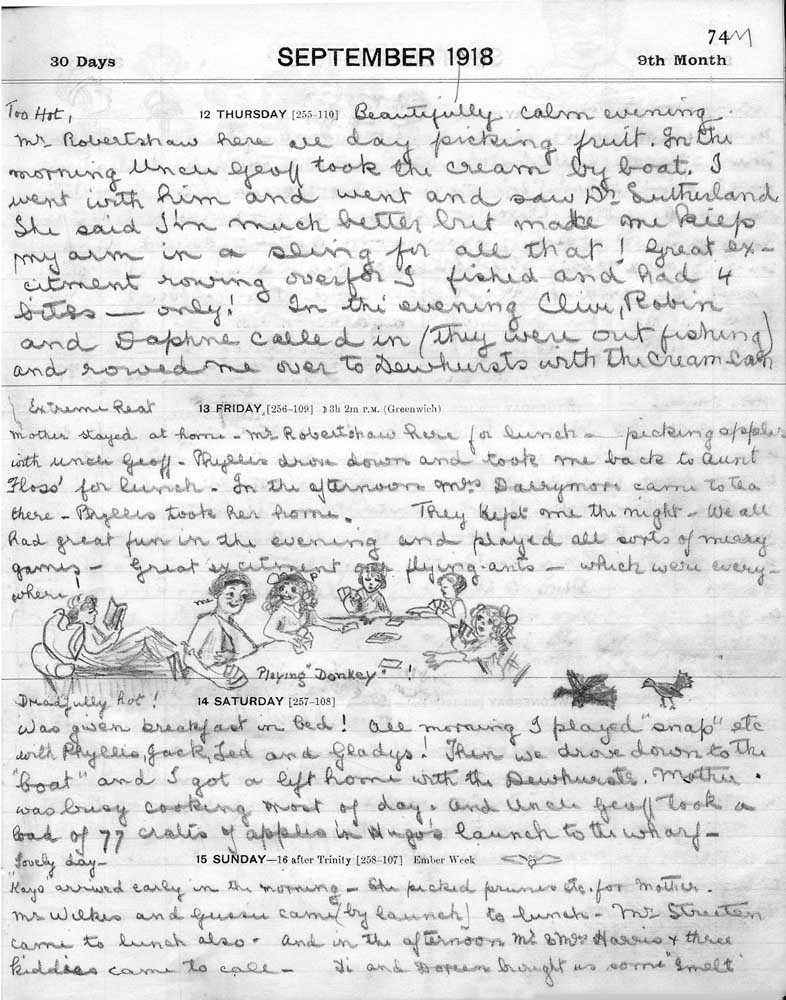 74
30 Days SEPTEMBER 1918 9th Month
Too Hot, 12 THURSDAY [255-110] Beautifully calm evening.
Mr Robertshaw here all day picking fruit. In the
morning Uncle Geoff took the cream by boat. I
went with him and went and saw Dr. Sutherland.
She said I'm much better but made me keep
my arm in a sling for all that! Great ex-
citment rowing over for I fished and had 4
bites — only! In the evening Clive, Robin
and Daphne called in (they were out fishing)
and rowed me over to Dewhursts with the cream can
Extreme Heat 13 FRIDAY [256-109] ☽3h 2m P.M. (Greenwich)
Mother stayed at home - Mr Robertshaw here for lunch - picking apples
with uncle Geoff - Phyllis drove down and took me back to Aunt
Floss' for lunch - In the afternoon Mrs came to tea
there - Phyllis took her home. They kept me the night - We all
had great fun in the evening and played all sorts of merry
games - Great excitment over flying-ants - which were every-
where!
me P
Playing "Donkey"!
Dreadfully hot! 14 SATURDAY [257-108]
Was given breakfast in bed! All morning I played "snap" etc
with Phyllis, Jack, Ted and Gladys! Then we drove down to the
"boat" and I got a lift home with the Dewhursts. Mother
was busy cooking most of day. and Uncle Geoff took a
load of 77 crates of apples in Hugo's launch to the wharf -
Lovely day - 15 SUNDAY—16 after Trinity [258-107] Ember Week
"Kayo arrived early in the morning - She picked prunes etc. for Mother.
Mr Wilkes and Gussie came (by launch) to lunch - Mr Streeten
came to lunch also. And in the afternoon Mr & Mrs Harris & three
kiddies came to call - Ti and Doreen brought us some "Smelt"